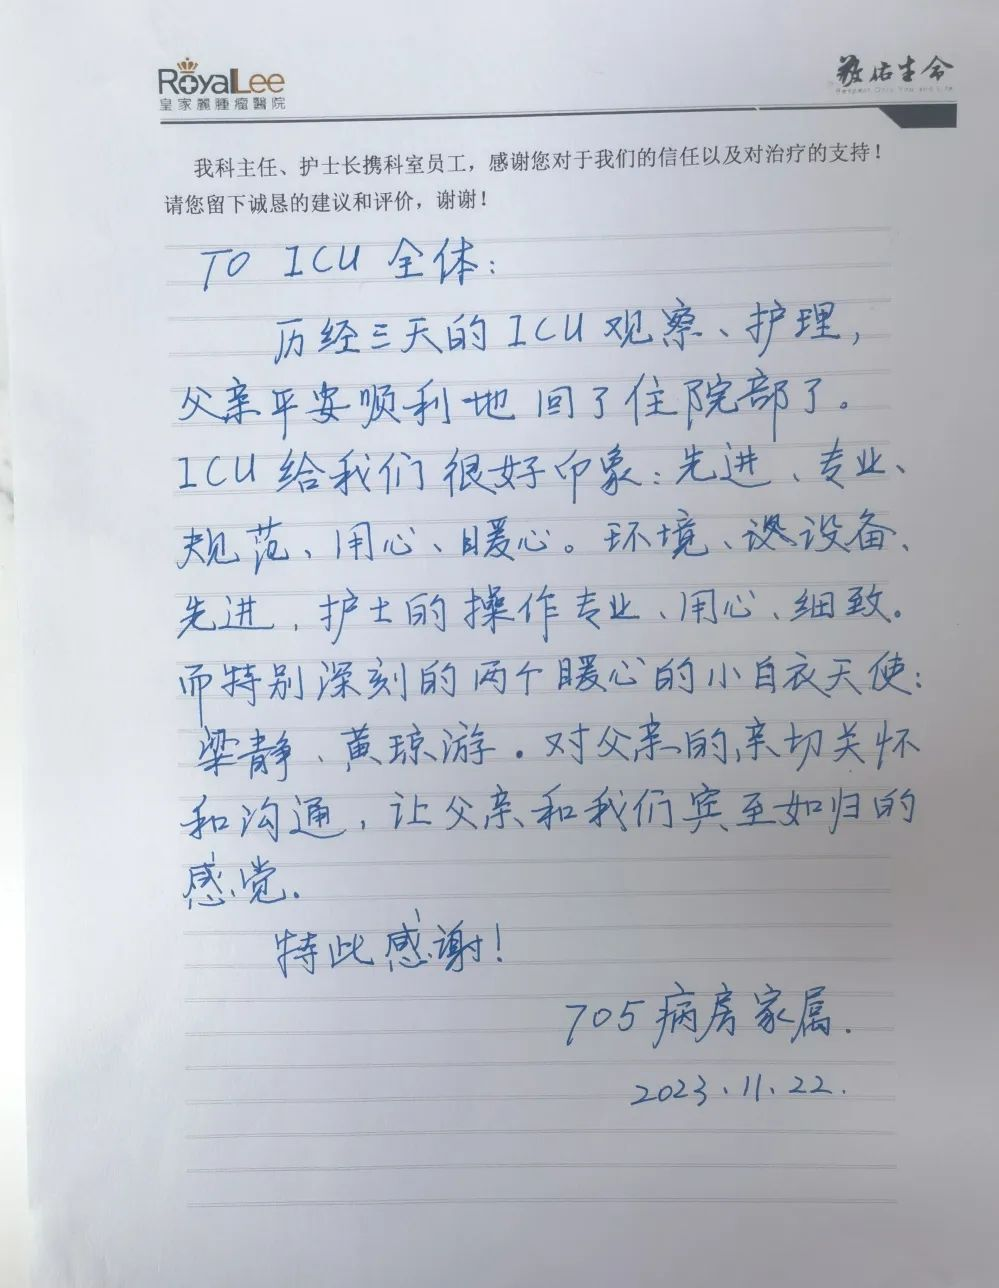 RoyalLee
皇家麗腫瘤醫院
敬佑生命
Respect Only You and Life
我科主任、护士长携科室员工，感谢您对于我们的信任以及对治疗的支持！
请您留下诚恳的建议和评价，谢谢！
TO ICU 全体：
历经三天的ICU观察、护理，
父亲平安顺利地回了住院部了。
ICU给我们很好印象：先进、专业、
规范、用心、暖心。环境、设备、
先进，护士的操作专业、用心、细致。
而特别深刻的两个暖心的小白衣天使：
梁静、黄琼游。对父亲的亲切关怀
和沟通，让父亲和我们宾至如归的
感觉.
特此感谢！
705病房家属.
2023.11.22.